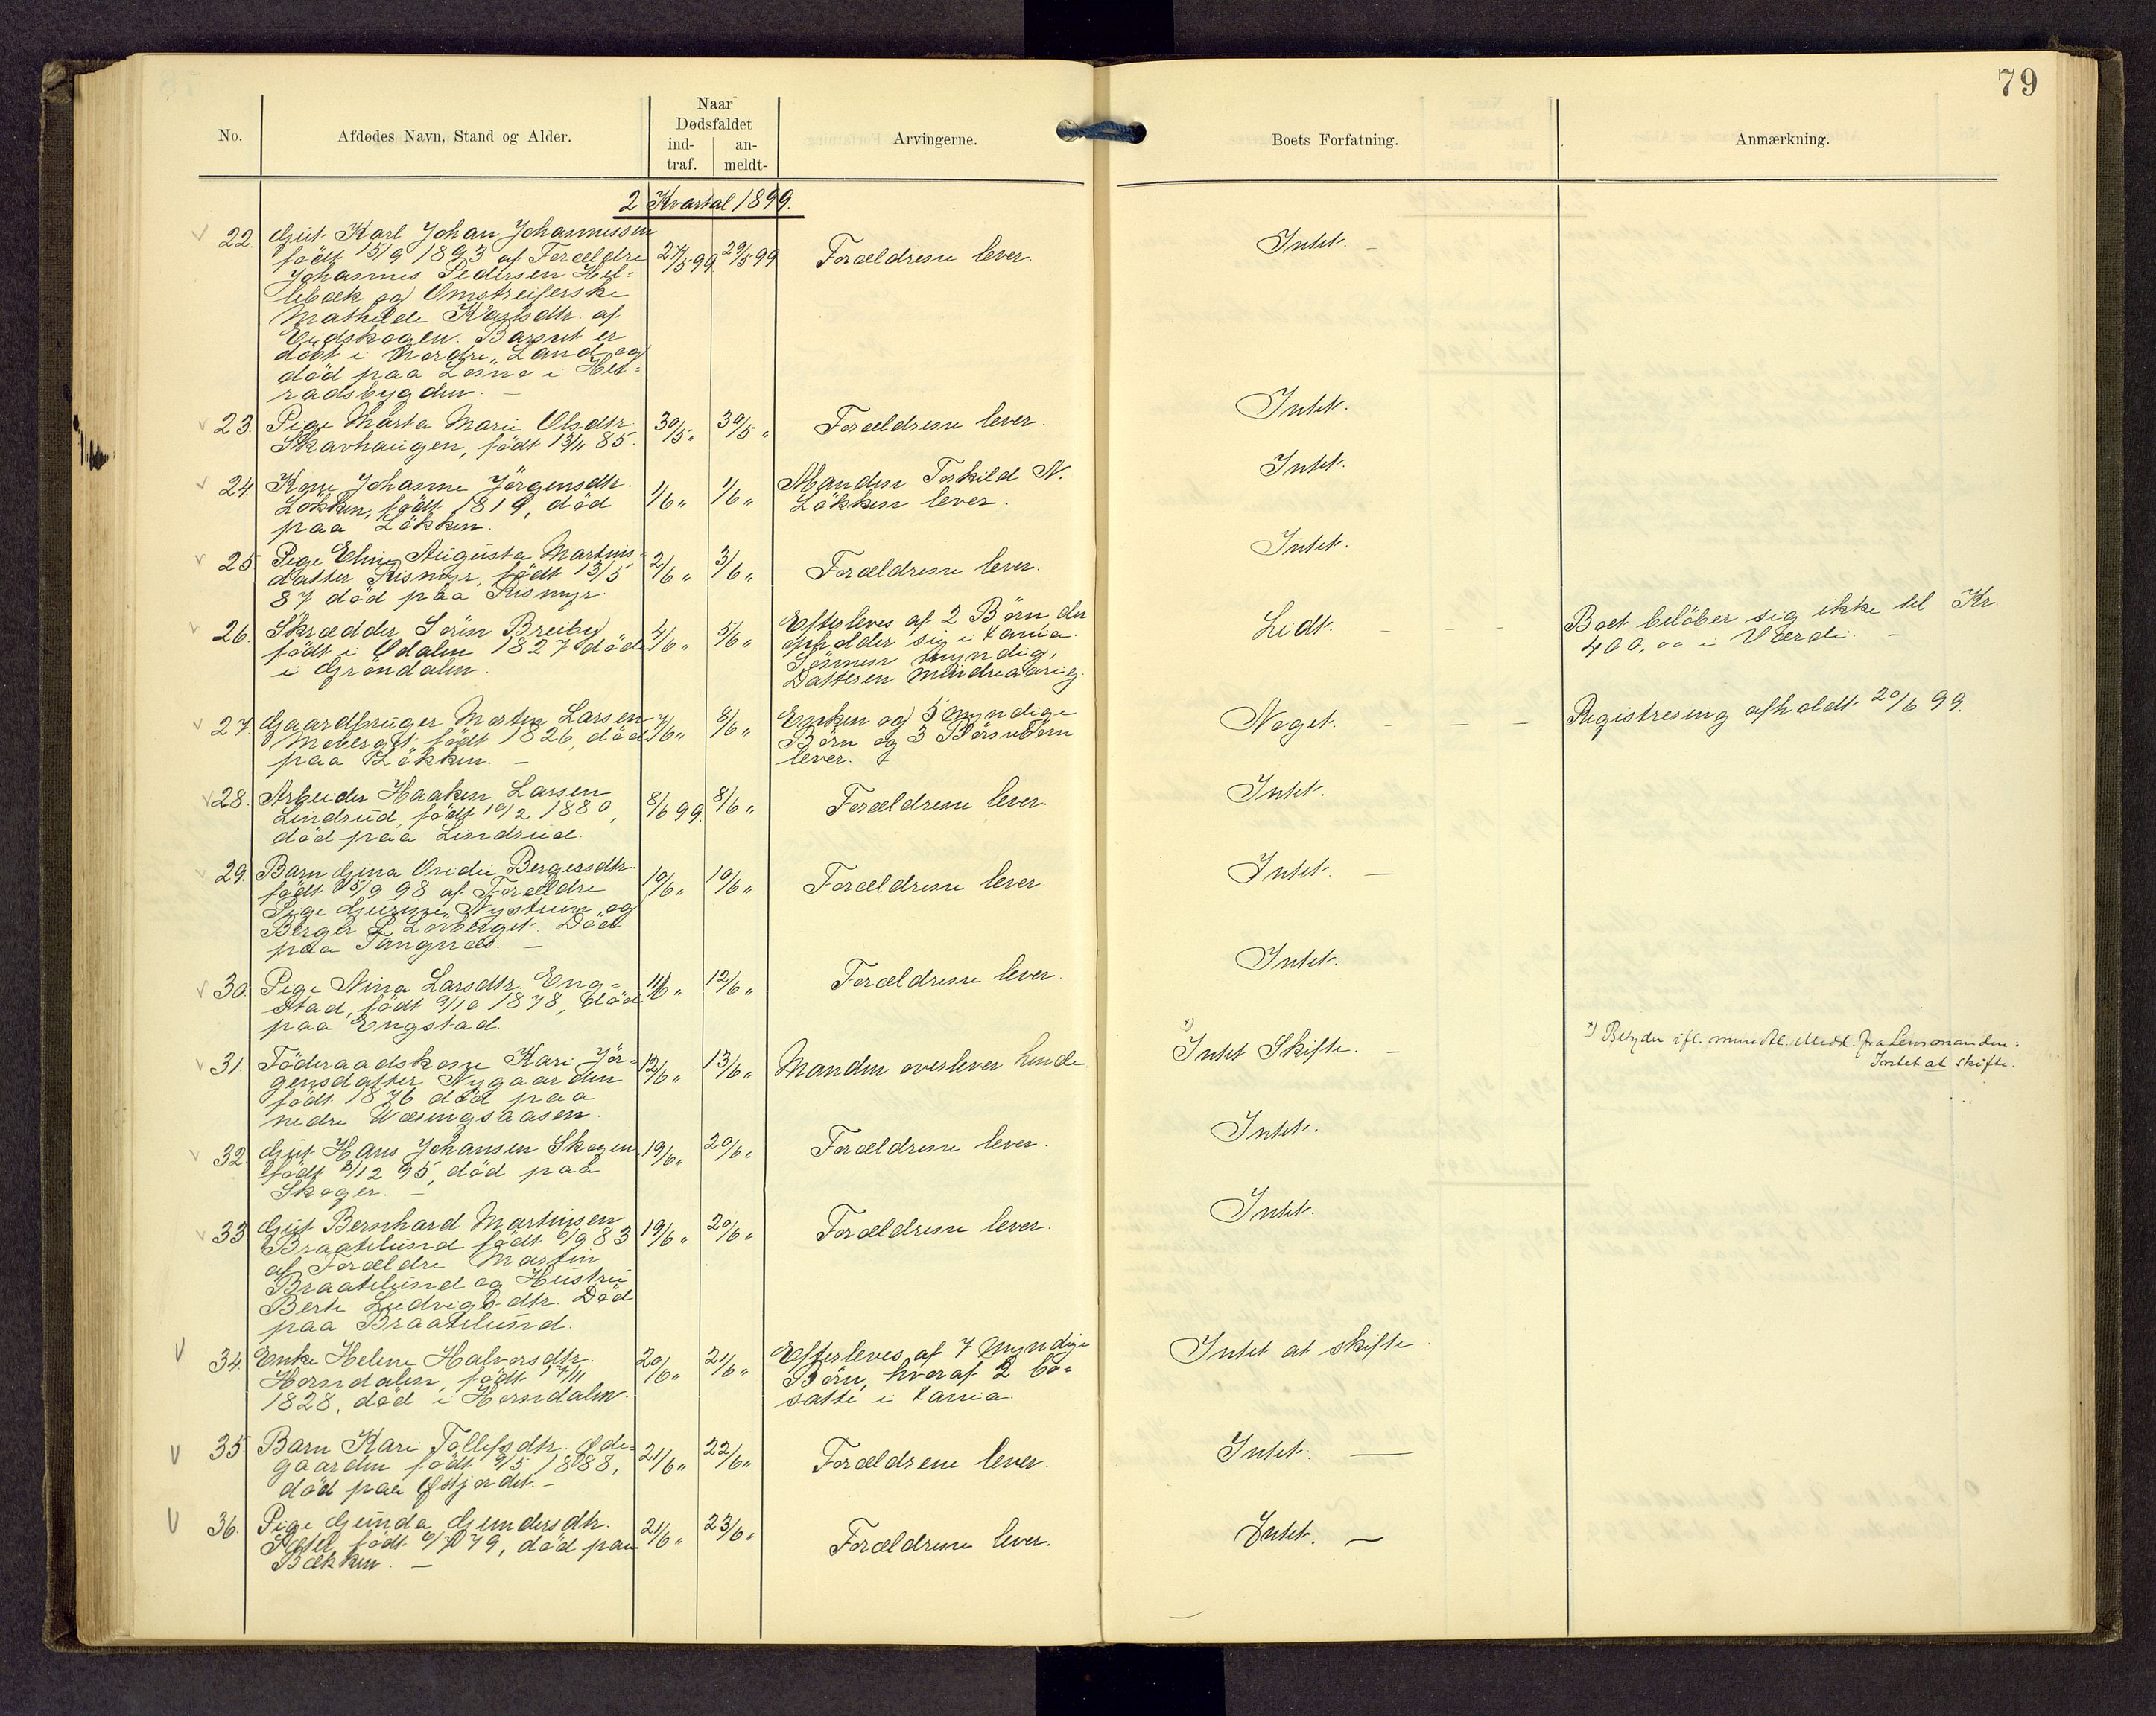 79
No.
Afdødes Navn, Stand og Alder.
Naar
Dødsfaldet
ind-
traf.
an-
meldt-
Arvingerne.
Boets Forfatning.
Anmærkning.
2 Kvartal 1899.
22. Gut Karl Johan Johannessen
født 15/9 1893 af Forældre 27/5 99 29/5 99 Forældrene lever. Intet. -
Johannes Pedersen Hel-
lebæk og Omstreiferske
Mathilde Karlsdtr. af
Eidskogen. Barnet er
døbt i Nordre Land og
død paa i
radsbygden. -
23. Pige Marta Marie Olsdtr. 30/5 „ 30/5 „ Forældrene lever. Intet.
Skavhaugen, født 13/11 85.
24. Kone Johanne Jörgensdtr. 1/6 „ 1/6 „ Manden Torkild N. Intet.
Lökken, født 1819, död Lökken lever.
paa Lökken.
25 Pige Eline Augusta Martins- 2/6 „ 3/6 „ Forældrene lever. Intet.
datter Rismyr, født 13/5
87 död paa Rismyr.
26. Skrædder Sörin Breiby 4/6 „ 5/6 „ Efterleves af 2 Börn der Lidt. - - - Boet belöber sig ikke til Kr.
födt i Odalen 1827 död opholder sig i 400,00 i Værdi. -
i Gröndalen. Sönnen myndig,
Datteren mindreaarig.
27. Gaardbruger Morten Larsen 7/6 „ 8/6 „ Enken og 5 myndige Noget. - - - Registrering afholdt 20/6 99.
Moberget födt 1826, död Börn og 3 Börnebörn
paa Lökken. - lever.
28. Arbeider Haaken Larsen 8/6 99. 8/6 „ Forældrene lever. Intet.
Lindrud, födt 10/2 1880,
död paa Lindrud.
29. Barn Gina Ovidie Bergersdtr. 10/6 „ 10/6 „ Forældrene lever Intet. -
födt 15/9 98 af Forældre
Pige Gurine Nystuen og
Berger L. Död
paa Tangnæs. -
30. Pige Nina Larsdtr. Eng- 11/6 „ 12/6 „ Forældrene lever. Intet.
stad, födt 9/10 1878, död
paa Engstad.
31. Föderaadskone Kari Jör- 12/6 „ 13/6 „ Manden overlever hende *) Intet Skifte. - *) Betyder ifl. mundtl. Medd. fra Lensmanden:
gensdatter Nygaarden Intet at skifte.
födt 1826 död paa
nedre Væringsaasen.
32. Gut Hans Johansen Skogen 19/6 „ 20/6 „ Forældrene lever. Intet.
födt 2/12 95, död paa
Skogen. -
33 Gut Bernhard Martinsen 19/6 „ 20/6 „ Forældrene lever. Intet.
Braatelund födt 6/9 83
af Forældre Martin
Braatelund og Hustru
Berte Ludvigsdtr. Död
paa Braatelund.
34. Enke Helene Halvorsdtr. 20/6 „ 21/6 „ Efterleves af 7 myndige Intet at skifte.
Horndalen, födt 17/11 Börn, hvoraf 2 bo-
1828, död i Horndalen. satte i
35. Barn Kari Tollefsdtr. Öde- 21/6 „ 22/6 „ Forældrene lever. Intet. -
gaarden födt 9/5 1888,
död paa Östjordet. -
36. Pige Gunda Gundersdtr. 21/6 „ 23/6 „ Forældrene lever. Intet. -
födt 6/7 79, död paa
Bækken. -